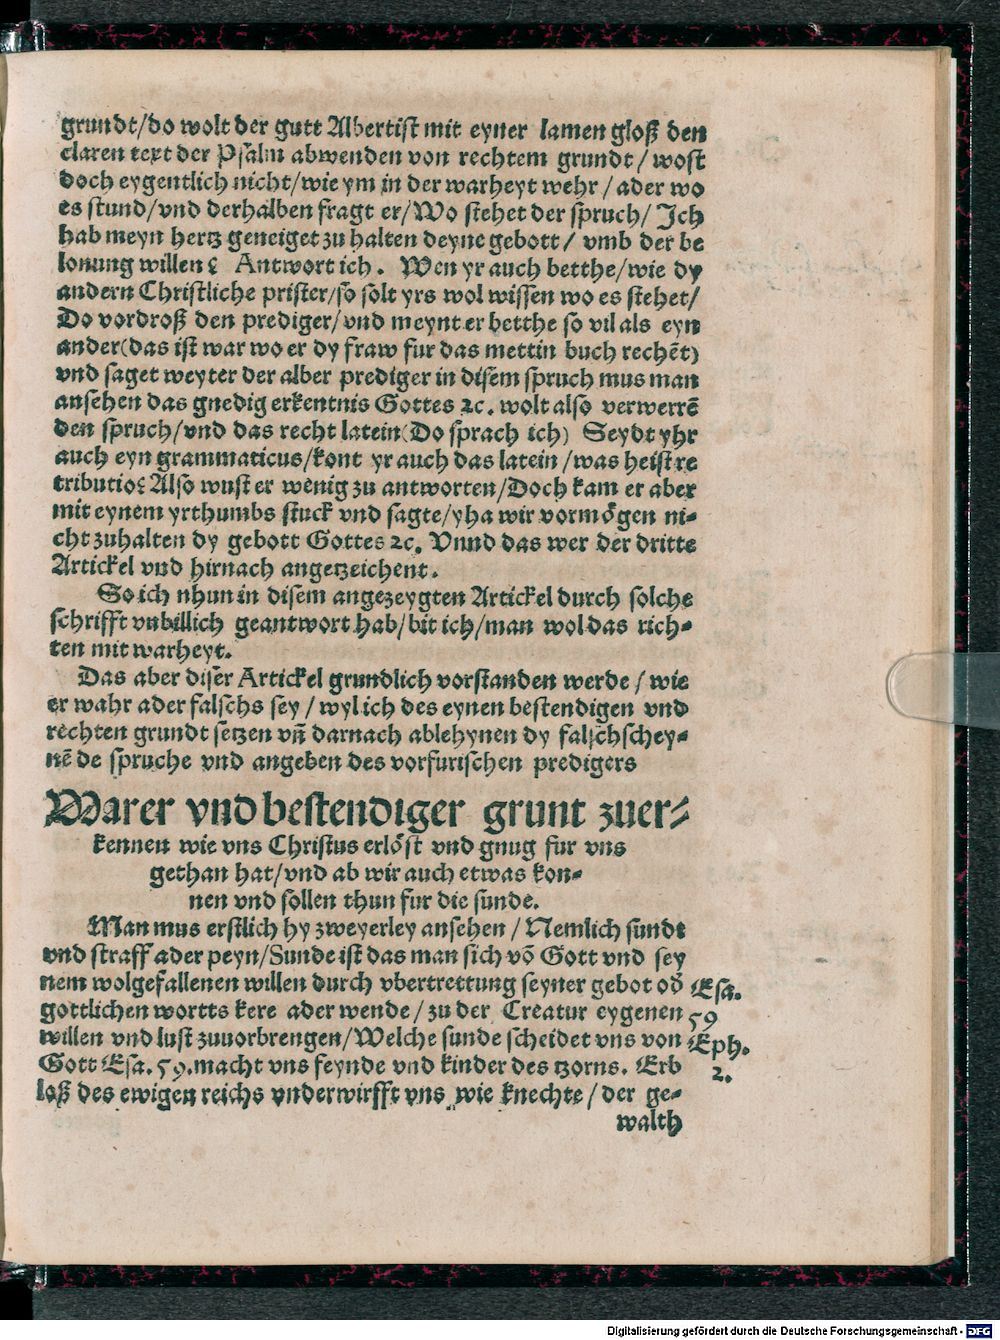 grundt/do wolt der gutt Albertist mit eyner lamen gloß den
claren text der Psalm abwenden von rechtem grundt/ wost
doch eygentlich nicht/wie ym in der warheyt wehr/ader wo
es stund/vnd derhalben fragt er/Wo stehet der spruch/Ich
hab meyn hertz geneiget zu halten deyne gebott/ vmb der be
lonung willen? Antwort ich. Wen yr auch betthe/wie dy
andern Christliche prister/so solt yrs wol wissen wo es stehet/
Do vordroß den prediger/vnd meynt er betthe so vil als eyn
ander(das ist war wo er dy fraw fur das mettin buch rechēt)
vnd saget weyter der alber prediger in disem spruch mus man
ansehen das gnedig erkentnis Gottes ꝛc. wolt also verwerrē
den spruch/vnd das recht latein(Do sprach ich) Seydt yhr
auch eyn grammaticus/kont yr auch das latein/was heist re
tributio? Also wust er wenig zu antworten/Doch kam er aber
mit eynem yrthumbs stuck vnd sagte/yha wir vormögen ni-
cht zuhalten dy gebott Gottes ꝛc. Vnnd das wer der dritte
Artickel vnd hirnach angetzeichent.
So ich nhun in disem angezeygten Artickel durch solche
schrifft vnbillich geantwort hab/bit ich/man wol das rich-
ten mit warheyt.
Das aber diser Artickel grundlich vorstanden werde/wie
er wahr ader falschs sey/wyl ich des eynen bestendigen vnd
rechten grundt setzen vñ darnach ablehynen dy falschschey-
nē de spruche vnd angeben des vorfurischen predigers
Warer vnd bestendiger grunt zuer-
kennen wie vns Christus erlöst vnd gnug fur vns
gethan hat/vnd ab wir auch etwas kon-
nen vnd sollen thun fur die sunde.
Man mus erstlich hy zweyerley ansehen/Nemlich sunde
vnd straff ader peyn/Sunde ist das man sich vō Gott vnd sey
nem wolgefallenen willen durch vbertrettung seyner gebot oḋ
gottlichen wortts kere ader wende/zu der Creatur eygenen
willen vnd lust zuuorbrengen/Welche sunde scheidet vns von
Gott Esa. 59. macht vns feynde vnd kinder des tzorns. Erb
loß des ewigen reichs vnderwirfft vns wie knechte/der ge-
walth
Esa.
59
Eph.
2.
Digitalisierung gefördert durch die Deutsche Forschungsgemeinschaft - DFG